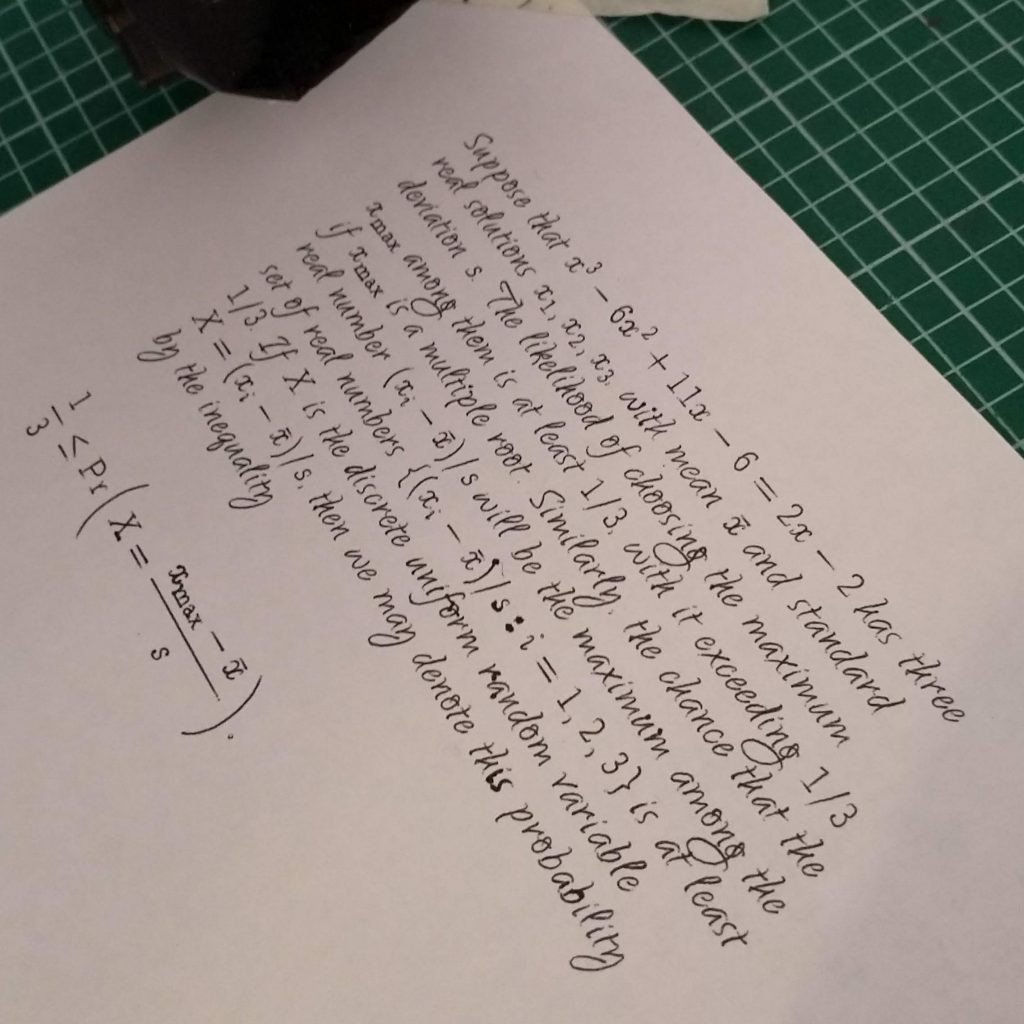 Suppose that x³ − 6x² + 11x − 6 = 2x − 2 has three
real solutions x₁, x₂, x₃, with mean x̄ and standard
deviation s. The likelihood of choosing the maximum
x_max among them is at least 1/3, with it exceeding 1/3
if x_max is a multiple root. Similarly, the chance that the
real number (xᵢ − x̄)/s will be the maximum among the
set of real numbers {(xᵢ − x̄)/s : i = 1, 2, 3} is at least
1/3. If X is the discrete uniform random variable
X = (xᵢ − x̄)/s, then we may denote this probability
by the inequality
1/3 ≤ Pr(X = (x_max − x̄)/s).